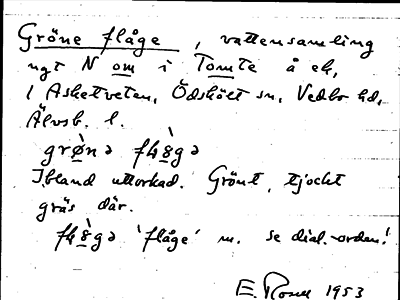 Gröne flåge, vattensamling
ngt N om i Tomte å ek,
i Asketveten, Ödskölt sn, Vedbo hd,
Älvsb. l.
grø̀nə fḷ8̀gə
Ibland uttorkad. Grönt, tjockt
gräs där.
fḷ8̀gə 'flåge' m. se dial.-orden!
E. 1953